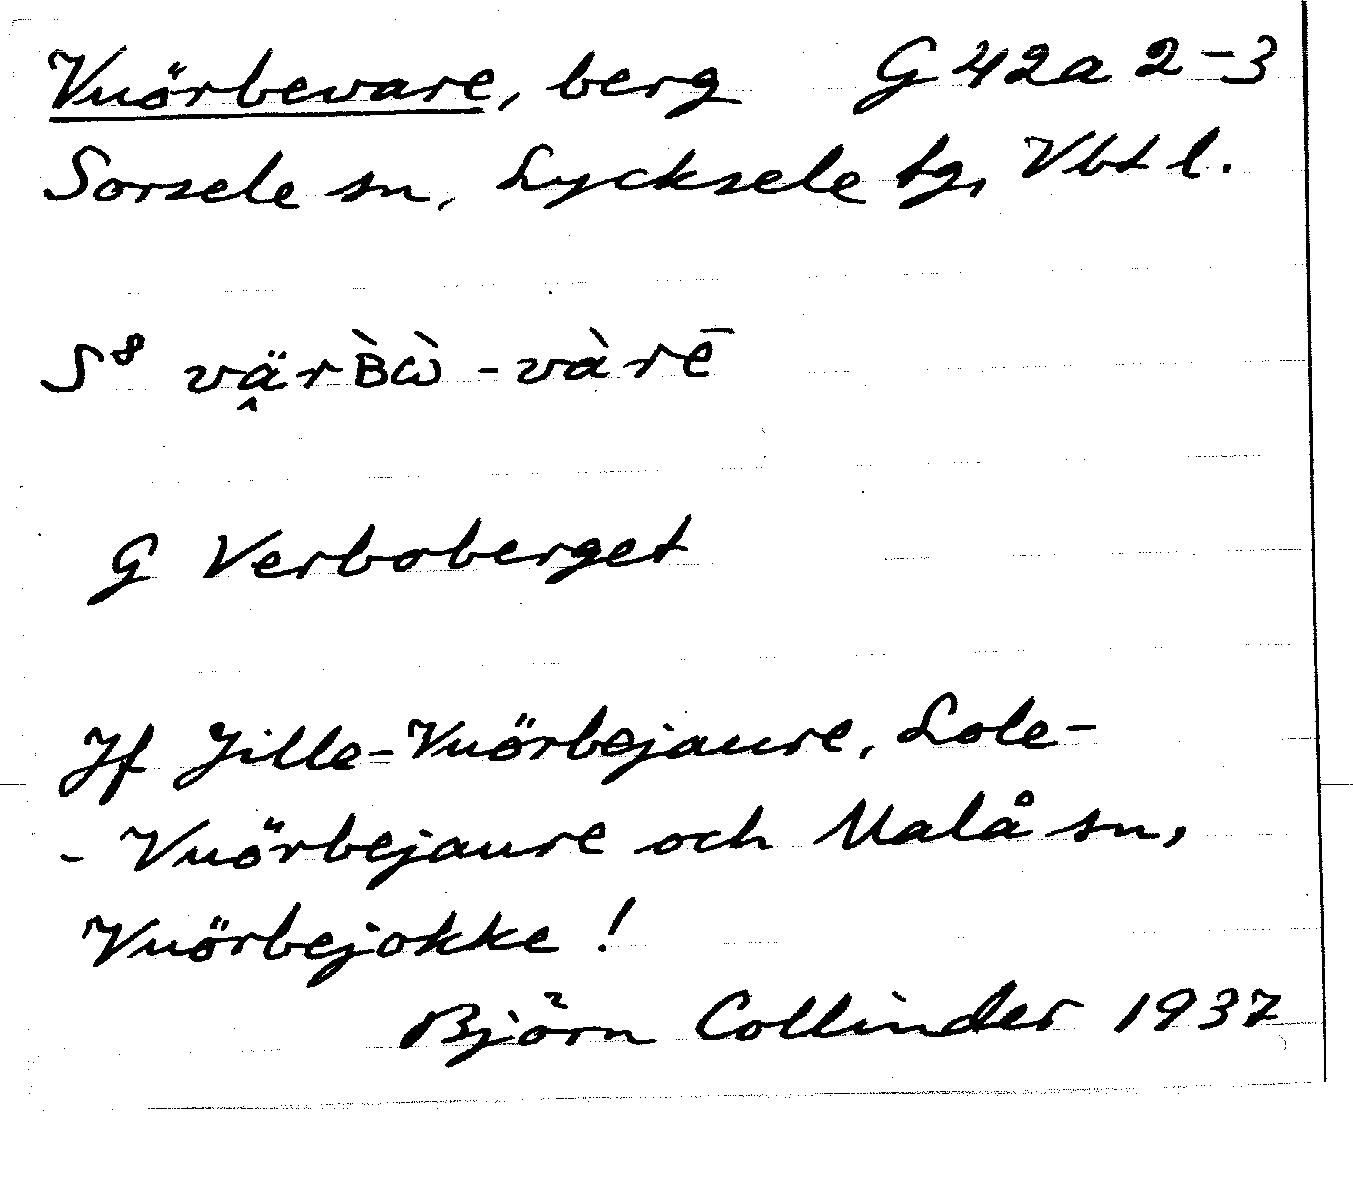 Vuörbevare, berg G 42a 2-3
Sorsele sn, Lycksele tg, Vbt l.
S⁸ vä̭rB̀ὼ-vàrē
G Verboberget
Jf Jille-Vuörbejaure, Lole-
- Vuörbejaure och Malå sn,
Vuörbejokke!
Björn Collinder 1937